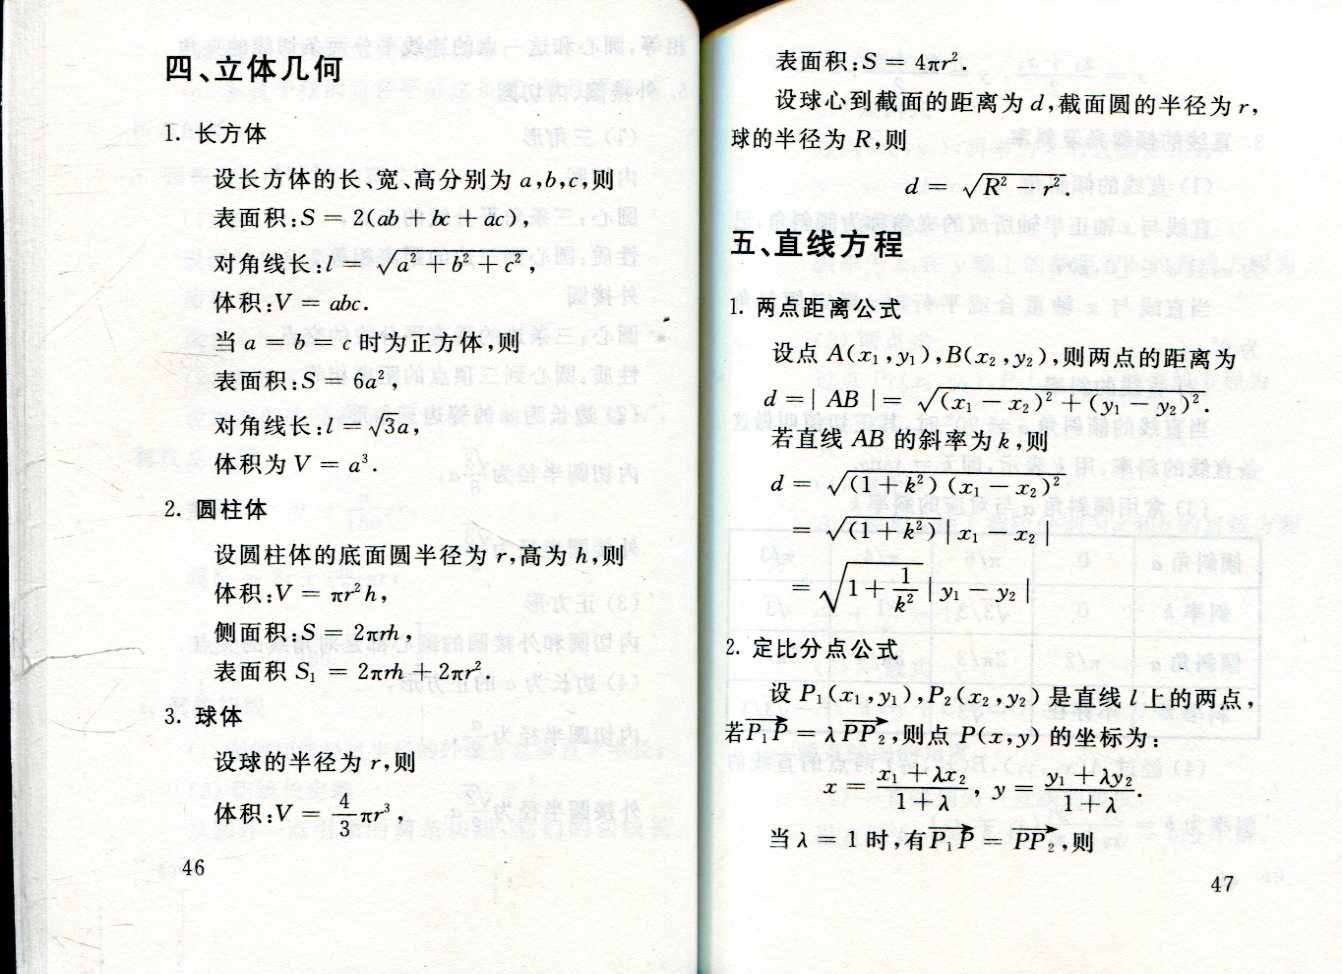 四、立体几何
1. 长方体
设长方体的长、宽、高分别为 a,b,c,则
表面积:S = 2(ab + bc + ac),
对角线长:l = √(a² + b² + c²),
体积:V = abc.
当 a = b = c 时为正方体,则
表面积:S = 6a²,
对角线长:l = √3a,
体积为 V = a³.
2. 圆柱体
设圆柱体的底面圆半径为 r,高为 h,则
体积:V = πr²h,
侧面积:S = 2πrh,
表面积 S₁ = 2πrh + 2πr².
3. 球体
设球的半径为 r,则
体积:V = 4/3 πr³,
46
表面积:S = 4πr².
设球心到截面的距离为 d,截面圆的半径为 r,
球的半径为 R,则
d = √(R² − r²).
五、直线方程
1. 两点距离公式
设点 A(x₁,y₁),B(x₂,y₂),则两点的距离为
d = | AB | = √((x₁ − x₂)² + (y₁ − y₂)²).
若直线 AB 的斜率为 k,则
d = √((1 + k²)(x₁ − x₂)²)
= √(1 + k²) | x₁ − x₂ |
= √(1 + 1/k²) | y₁ − y₂ |
2. 定比分点公式
设 P₁(x₁,y₁),P₂(x₂,y₂) 是直线 l 上的两点,
若 P₁P→ = λ PP₂→,则点 P(x,y) 的坐标为:
x = (x₁ + λx₂)/(1 + λ), y = (y₁ + λy₂)/(1 + λ).
当 λ = 1 时,有 P₁P→ = PP₂→,则
47